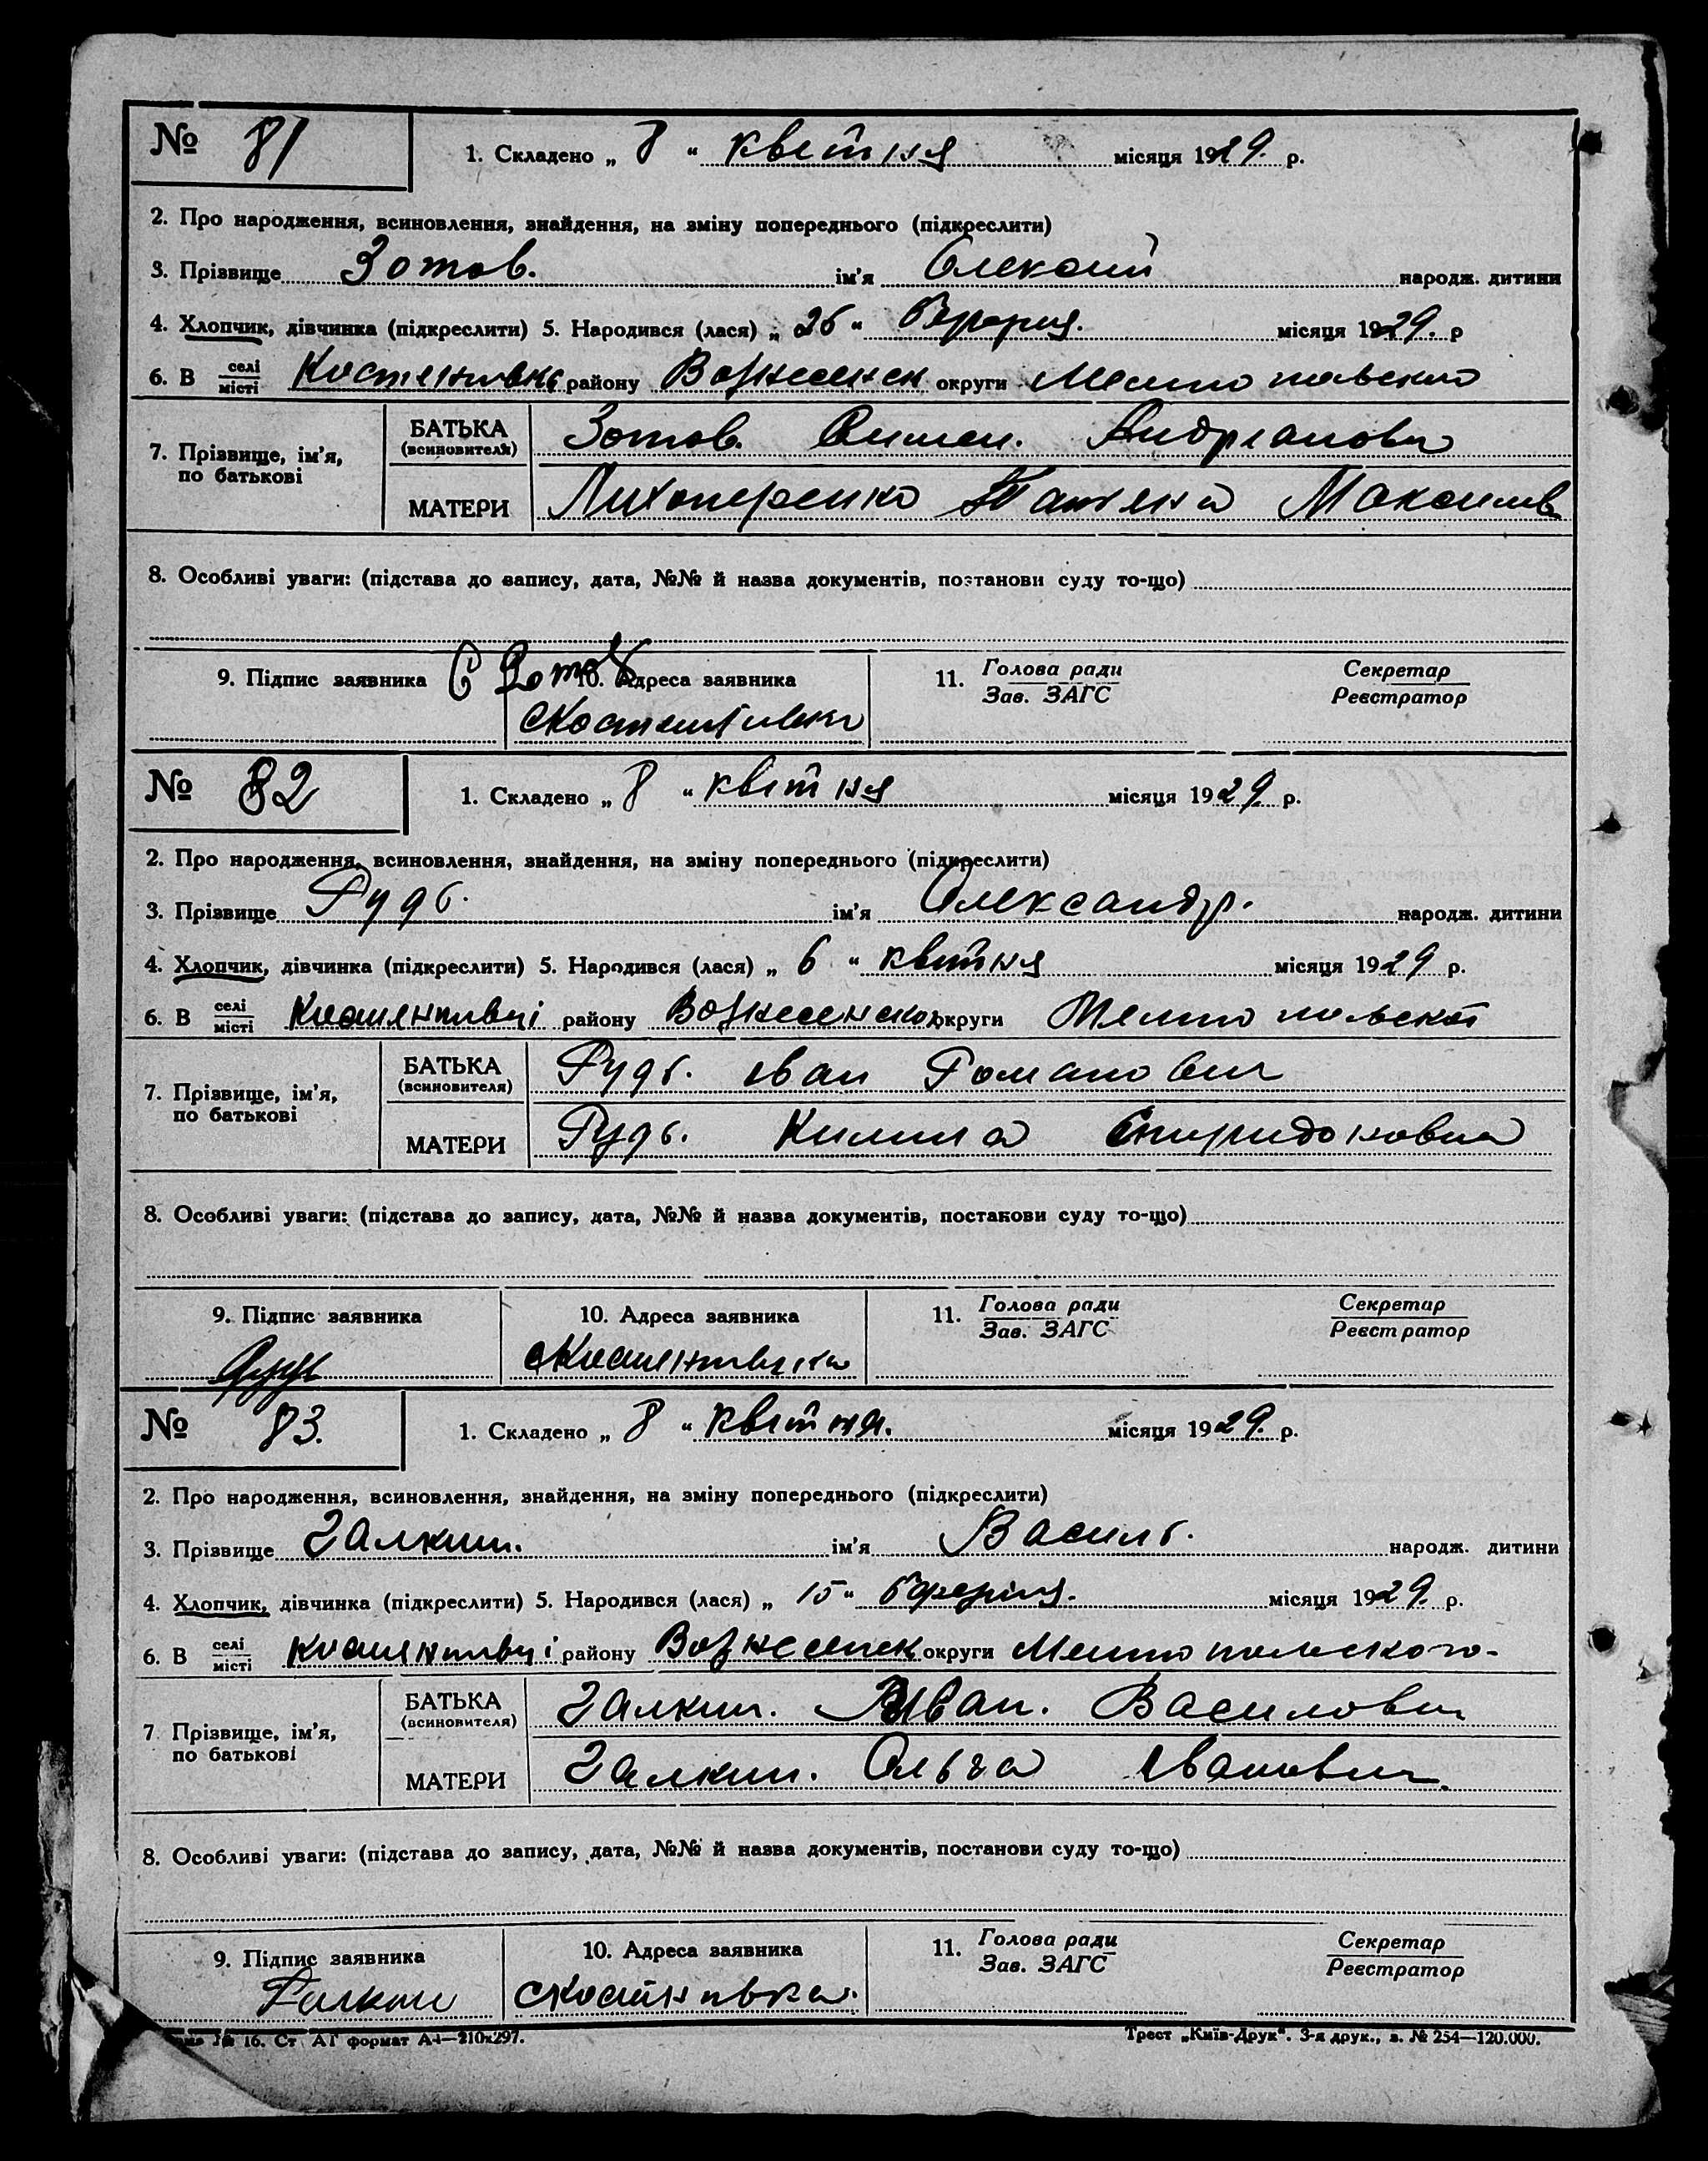 № 81 1. Складено „ 8 “ квітня місяця 1929. р.
2. Про народження, всиновлення, знайдення, на зміну попереднього (підкреслити)
3. Прізвище Зотов. ім'я Олексий народж. дитини
4. Хлопчик, дівчинка (підкреслити) 5. Народився (лася) „ 26 “ місяця 1929. р
6. В селі / місті району Вознесенск округи
7. Прізвище, ім'я, по батькові
БАТЬКА (всиновителя) Зотов. Андріанович
МАТЕРИ Максимов
8. Особливі уваги: (підстава до запису, дата, №№ й назва документів, постанови суду то-що)
9. Підпис заявника С Зотов 10. Адреса заявника 11. Голова ради / Зав. ЗАГС Секретар / Реєстратор
№ 82 1. Складено „ 8 “ квітня місяця 1929. р.
2. Про народження, всиновлення, знайдення, на зміну попереднього (підкреслити)
3. Прізвище Рудь. ім'я Олександр. народж. дитини
4. Хлопчик, дівчинка (підкреслити) 5. Народився (лася) „ 6 “ квітня місяця 1929 р.
6. В селі / місті району округи
7. Прізвище, ім'я, по батькові
БАТЬКА (всиновителя) Рудь. Іван Романович
МАТЕРИ Рудь. Килина Спиридоновна
8. Особливі уваги: (підстава до запису, дата, №№ й назва документів, постанови суду то-що)
9. Підпис заявника 10. Адреса заявника 11. Голова ради / Зав. ЗАГС Секретар / Реєстратор
Рудь
№ 83. 1. Складено „ 8 “ квітня. місяця 1929. р.
2. Про народження, всиновлення, знайдення, на зміну попереднього (підкреслити)
3. Прізвище Галкин. ім'я Василь. народж. дитини
4. Хлопчик, дівчинка (підкреслити) 5. Народився (лася) „ 15 “ місяця 1929. р.
6. В селі / місті району Вознесенск округи Мелитопольского-
7. Прізвище, ім'я, по батькові
БАТЬКА (всиновителя) Галкин. Іван. Василович
МАТЕРИ Галкин. Ольга Іванович.
8. Особливі уваги: (підстава до запису, дата, №№ й назва документів, постанови суду то-що)
9. Підпис заявника 10. Адреса заявника 11. Голова ради / Зав. ЗАГС Секретар / Реєстратор
Галкин
№ 16. Ст АГ формат А4—210x297. Трест „Київ-Друк“. 3-я друк., з. № 254—120.000.